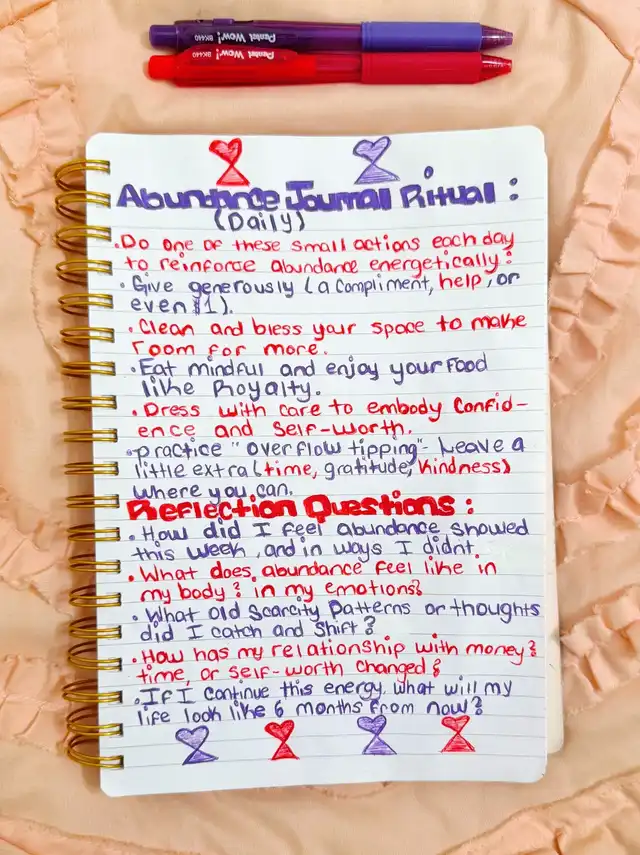 Pentel Wow! BK440
Pentel Wow! BK440
Abundance Journal Ritual:
(Daily)
•Do one of these small actions each day
to reinforce abundance energetically:
•Give generously (a compliment, help, or
even $1).
•Clean and bless your space to make
room for more.
•Eat mindful and enjoy your food
like Royalty.
•Dress with care to embody Confid-
ence and Self-Worth.
•practice "overflow tipping"- Leave a
little extra (time, gratitude, kindness)
where you can.
Reflection Questions:
•How did I feel abundance showed
this week, and in ways I didnt.
•What does abundance feel like in
my body? in my emotions?
•What old Scarcity Patterns or thoughts
did I catch and Shift?
•How has my relationship with money?
time, or self-worth changed?
•If I continue this energy. what will my
life look like 6 months from now?